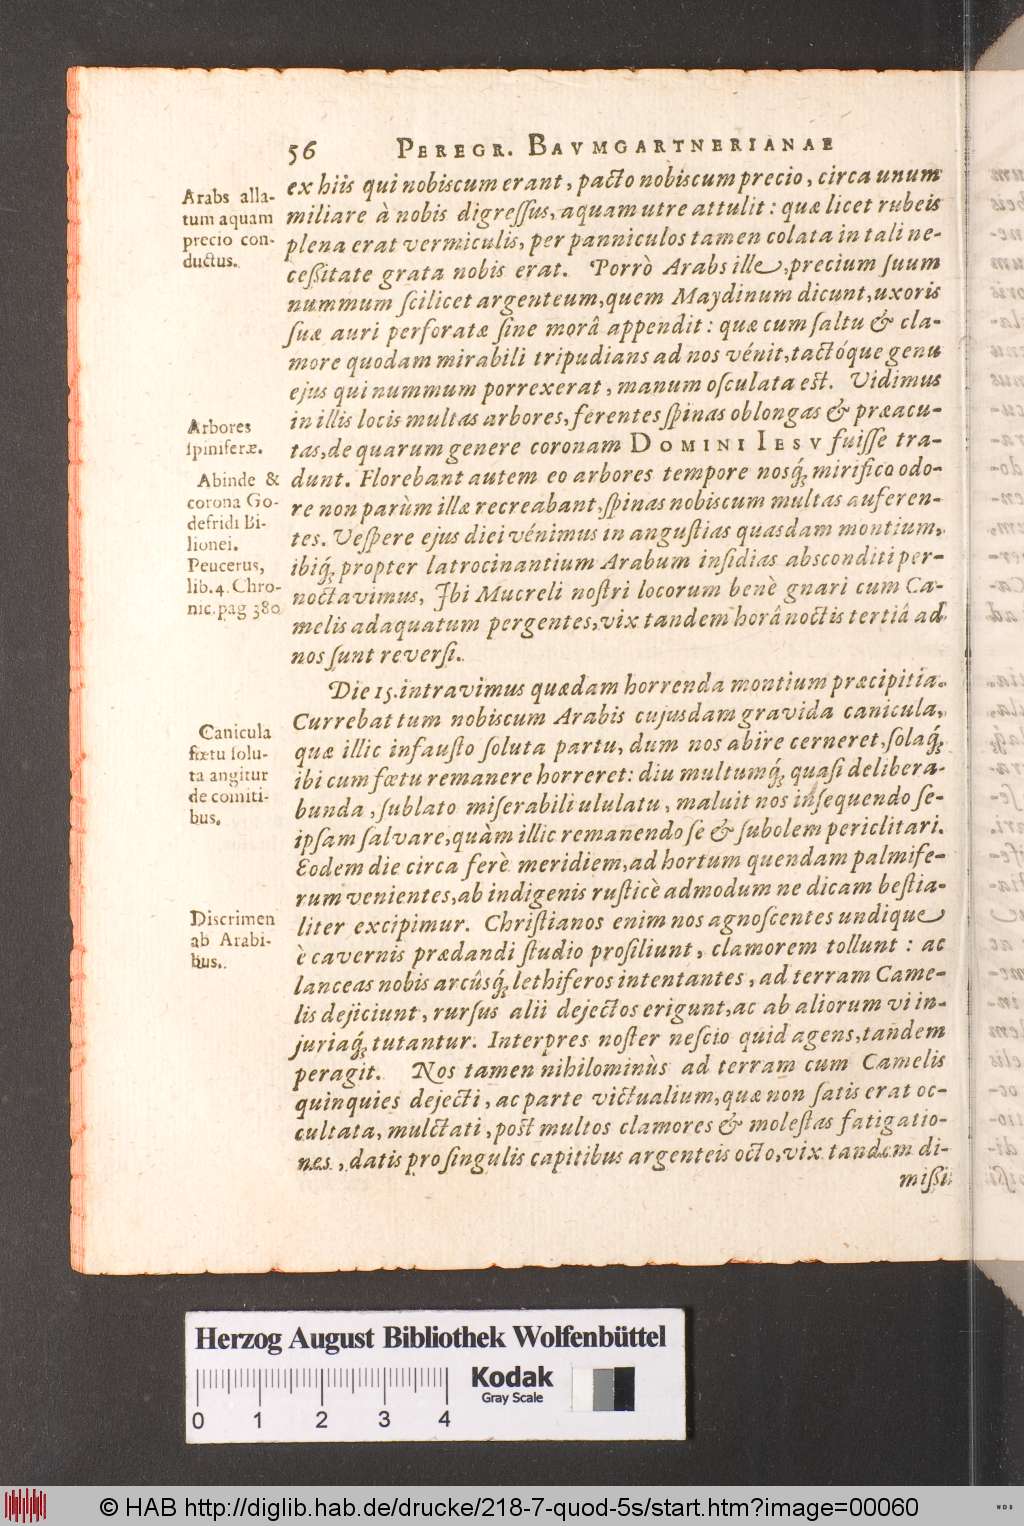 56 PEREGR. BAVMGARTNERIANAE
Arabs alla-
tum aquam
precio con-
ductus.
ex hiis qui nobiscum erant, pacto nobiscum precio, circa unum
miliare à nobis digreſſus, aquam utre attulit: quæ licet rubeis
plena erat vermiculis, per panniculos tamen colata in tali ne-
ceſſitate grata nobis erat. Porrò Arabs ille, precium ſuum
nummum ſcilicet argenteum, quem Maydinum dicunt, uxoris
ſuæ auri perforatæ ſine morâ appendit: quæ cum ſaltu & cla-
more quodam mirabili tripudians ad nos vénit, tactóque genu
ejus qui nummum porrexerat, manum oſculata est. Vidimus
in illis locis multas arbores, ferentes ſpinas oblongas & præacu-
Arbores
ſpiniferæ.
tas, de quarum genere coronam DOMINI IESV fuiſſe tra-
Abinde &
corona Go-
defridi Bi-
lionei.
Peucerus,
lib. 4. Chro-
nic. pag 380
dunt. Florebant autem eo arbores tempore nosq́; mirifico odo-
re non parùm illæ recreabant, ſpinas nobiscum multas auferen-
tes. Veſpere ejus diei vénimus in anguſtias quasdam montium,
ibiq́; propter latrocinantium Arabum inſidias absconditi per-
noctavimus, Ibi Mucreli noſtri locorum benè gnari cum Ca-
melis adaquatum pergentes, vix tandem horâ noctis tertiâ ad
nos ſunt reverſi.
Die 15. intravimus quædam horrenda montium præcipitia.
Currebat tum nobiscum Arabis cujusdam gravida canicula,
Canicula
fœtu ſolu-
ta angitur
de comiti-
bus.
quæ illic infauſto ſoluta partu, dum nos abiïre cerneret, ſolaq́;
ibi cum fœtu remanere horreret: diu multumq́; quaſi delibera-
bunda, ſublato miſerabili ululatu, maluit nos inſequendo ſe-
ipſam ſalvare, quàm illic remanendo ſe & ſubolem periclitari.
Eodem die circa ferè meridiem, ad hortum quendam palmife-
rum venientes, ab indigenis ruſticè admodum ne dicam beſtia-
Discrimen
ab Arabi-
bus.
liter excipimur. Chriſtianos enim nos agnoſcentes undique
è cavernis prædandi ſtudio proſiliunt, clamorem tollunt: ac
lanceas nobis arcûsq́; lethiferos intentantes, ad terram Came-
lis dejiciunt, rurſus alii dejectos erigunt, ac ab aliorum vi in-
juriaq́; tutantur. Interpres noſter neſcio quid agens, tandem
peragit. Nos tamen nihilominùs ad terram cum Camelis
quinquies dejecti, ac parte victualium, quæ non ſatis erat oc-
cultata, mulctati, post multos clamores & moleſtas fatigatio-
nes, datis pro ſingulis capitibus argenteis octo, vix tandem di-
miſſi
Herzog August Bibliothek Wolfenbüttel
Kodak
Gray Scale
0 1 2 3 4
© HAB http://diglib.hab.de/drucke/218-7-quod-5s/start.htm?image=00060